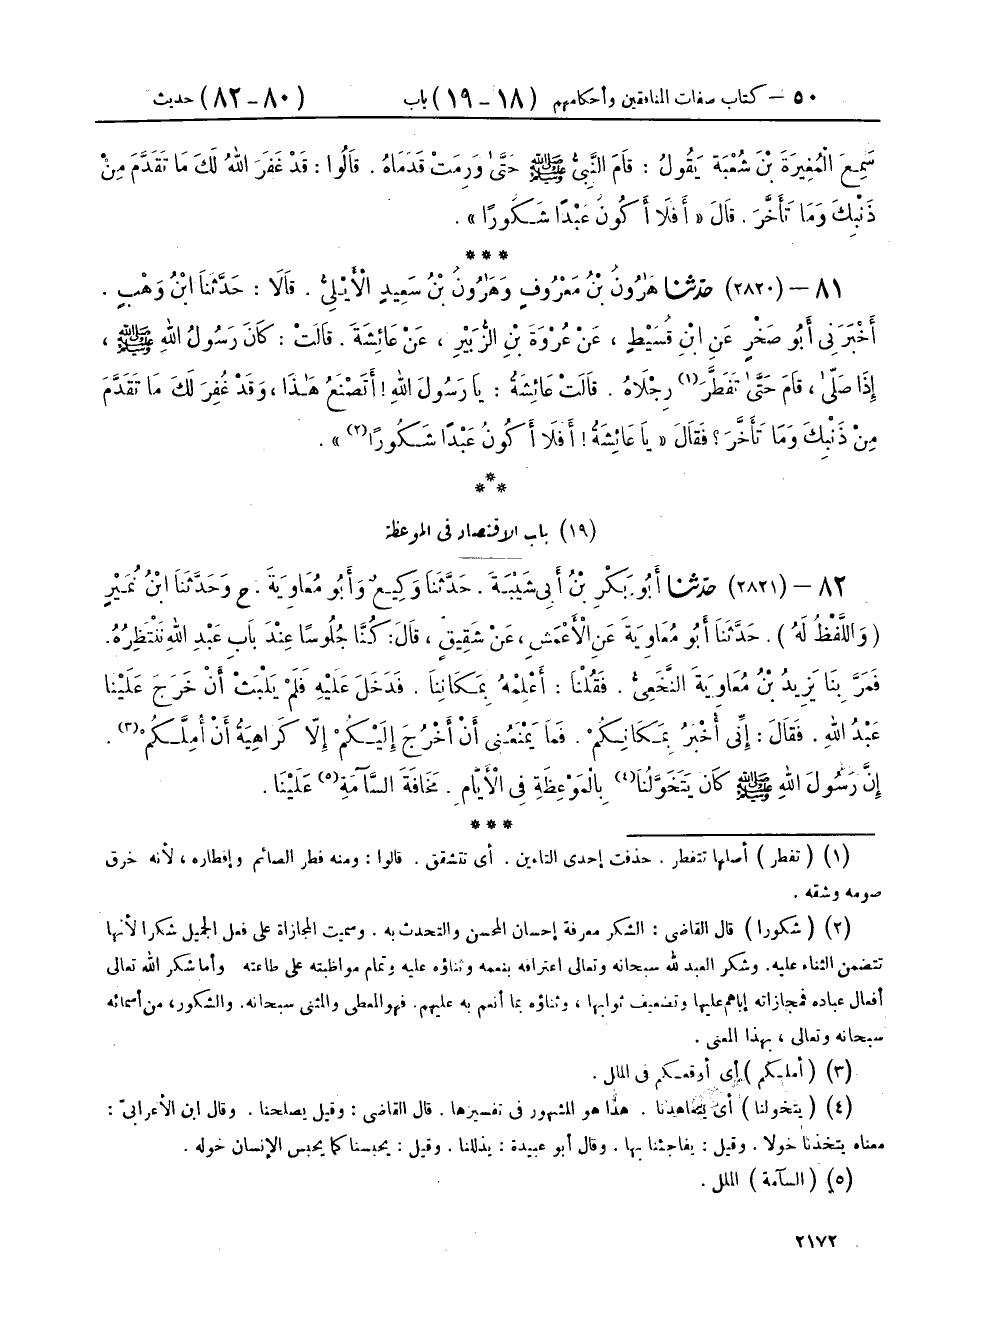 ٥٠ – كتاب صفات المنافقين وأحكامهم (١٨-١٩) باب (٨٠-٨٢) حديث
سَمِعَ الْمُغِيرَةَ بْنَ شُعْبَةَ يَقُولُ : قَامَ النَّبِىُّ ﷺ حَتَّىٰ وَرِمَتْ قَدَمَاهُ . قَالُوا : قَدْ غَفَرَ اللهُ لَكَ مَا تَقَدَّمَ مِنْ
ذَنْبِكَ وَمَا تَأَخَّرَ . قَالَ « أَفَلَا أَكُونُ عَبْدًا شَكُورًا » .
***
٨١ – (٢٨٢٠) حَدَّثَنَا هَٰرُونُ بْنُ مَعْرُوفٍ وَهَٰرُونُ بْنُ سَعِيدٍ الْأَيْلِىُّ . قَالَا : حَدَّثَنَا ابْنُ وَهْبٍ .
أَخْبَرَنِى أَبُو صَخْرٍ عَنِ ابْنِ قُسَيْطٍ ، عَنْ عُرْوَةَ بْنِ الزُّبَيْرِ ، عَنْ عَائِشَةَ . قَالَتْ : كَانَ رَسُولُ اللهِ ﷺ ،
إِذَا صَلَّىٰ ، قَامَ حَتَّىٰ تَفَطَّرَ(١) رِجْلَاهُ . قَالَتْ عَائِشَةُ : يَا رَسُولَ اللهِ ! أَتَصْنَعُ هَٰذَا ، وَقَدْ غُفِرَ لَكَ مَا تَقَدَّمَ
مِنْ ذَنْبِكَ وَمَا تَأَخَّرَ ؟ فَقَالَ « يَا عَائِشَةُ ! أَفَلَا أَكُونُ عَبْدًا شَكُورًا(٢) » .
***
(١٩) باب الاقتصاد فى الموعظة
٨٢ – (٢٨٢١) حَدَّثَنَا أَبُو بَكْرِ بْنُ أَبِى شَيْبَةَ . حَدَّثَنَا وَكِيعٌ وَأَبُو مُعَاوِيَةَ . ح وَحَدَّثَنَا ابْنُ نُمَيْرٍ
( وَاللَّفْظُ لَهُ ) . حَدَّثَنَا أَبُو مُعَاوِيَةَ عَنِ الْأَعْمَشِ ، عَنْ شَقِيقٍ ، قَالَ : كُنَّا جُلُوسًا عِنْدَ بَابِ عَبْدِ اللهِ نَنْتَظِرُهُ .
فَمَرَّ بِنَا يَزِيدُ بْنُ مُعَاوِيَةَ النَّخَعِىُّ . فَقُلْنَا : أَعْلِمْهُ بِمَكَانِنَا . فَدَخَلَ عَلَيْهِ فَلَمْ يَلْبَثْ أَنْ خَرَجَ عَلَيْنَا
عَبْدُ اللهِ . فَقَالَ : إِنِّى أُخْبَرُ بِمَكَانِكُمْ . فَمَا يَمْنَعُنِى أَنْ أَخْرُجَ إِلَيْكُمْ إِلَّا كَرَاهِيَةُ أَنْ أُمِلَّكُمْ(٣) .
إِنَّ رَسُولَ اللهِ ﷺ كَانَ يَتَخَوَّلُنَا(٤) بِالْمَوْعِظَةِ فِى الْأَيَّامِ . مَخَافَةَ السَّآمَةِ(٥) عَلَيْنَا .
***
(١) ( تفطر ) أصلها تتفطر . حذفت إحدى التاءين . أى تتشقق . قالوا : ومنه فطر الصائم وإفطاره ، لأنه خرق
صومه وشقه .
(٢) ( شكورا ) قال القاضى : الشكر معرفة إحسان المحسن والتحدث به . وسميت المجازاة على فعل الجميل شكرا لأنها
تتضمن الثناء عليه . وشكر العبد لله سبحانه وتعالى اعترافه بنعمه وثناؤه عليه وتمام مواظبته على طاعته وأما شكر الله تعالى
أفعال عباده فمجازاته إياهم عليها وتضعيف ثوابها ، وثناؤه بما أنعم به عليهم . فهو المعطى والمثنى سبحانه . والشكور ، من أسمائه
سبحانه وتعالى ، بهذا المعنى .
(٣) ( أملكم ) أى أوقعكم فى الملل .
(٤) ( يتخولنا ) أى يتعاهدنا . هذا هو المشهور فى تفسيرها . قال القاضى : وقيل يصلحنا . وقال ابن الأعرابىّ :
معناه يتخذنا خولا . وقيل : يفاجئنا بها . وقال أبو عبيدة : يذللنا . وقيل : يحبسنا كما يحبس الإنسان خوله .
(٥) ( السآمة ) الملل .
٢١٧٢